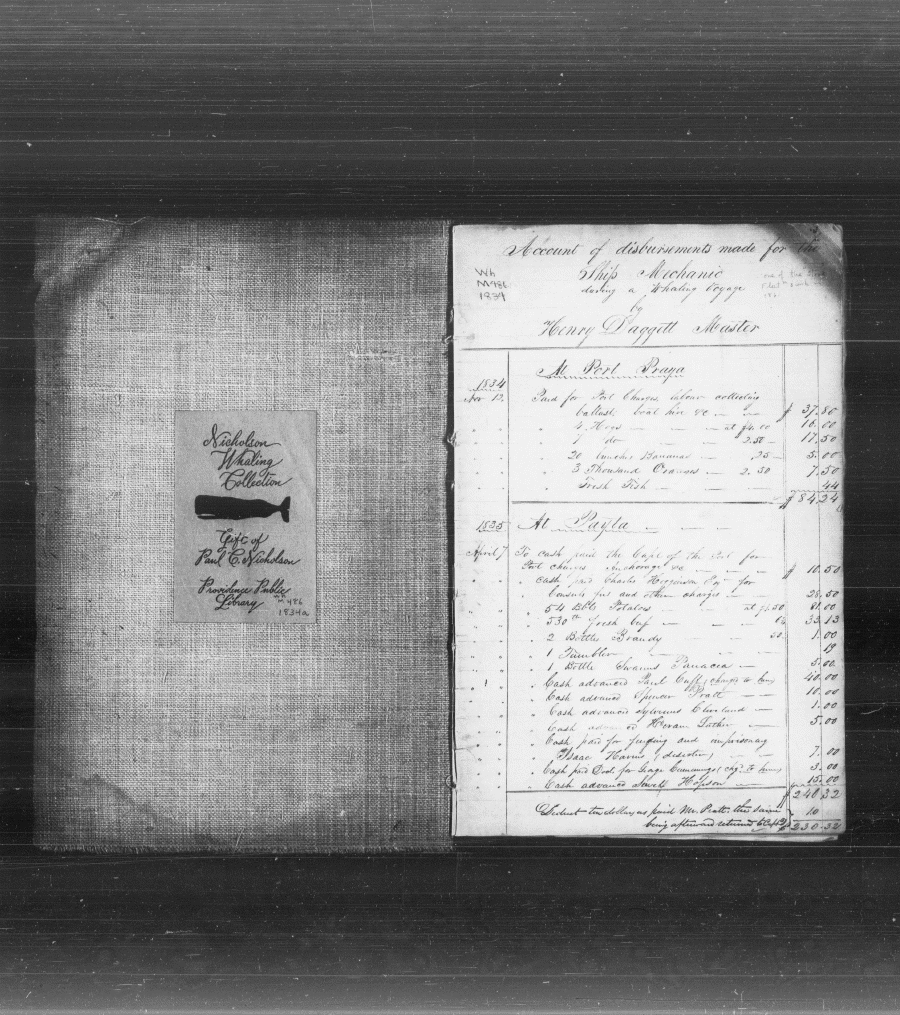 Nicholson
Whaling
Collection
Gift of
Paul C. Nicholson
Providence Public
Library
Wh
M486
1834a
Account of disbursements made for the
Ship Mechanic
during a Whaling Voyage
by
Henry Daggett Master
Wh
M486
1834
At Port Praya
1834
Nov 12. Paid for Port Charges labour collecting
ballast, boat hire &c — $ 37.80
" " 4 Hogs — at $4.00 16.00
" " 7 do — 2.50 — 17.50
" " 20 bunches Bananas — .25 — 5.00
" " 3 Thousand Oranges — 2.50 7.50
" " Fresh Fish — 44
$ 84.24
1835 At Payta
April 7 To cash paid the Capt of the Port for
Port charges Anchorage &c — $ 10.50
" Cash paid Charles Higginson Esqr for
Consuls fees and other charges — 28.50
" 54 Bbls Potatoes at $1.50 81.00
" 530 lb fresh beef — 33.13
" 2 Bottles Brandy 1.00
" 1 Tumbler — 19
" 1 Bottle Swaims Panacea — 5.00
" Cash advanced Paul Cuff (charged to him) 40.00
" Cash advanced Spencer Pratt — 10.00
" Cash advanced Sylvanus Cleveland — 1.00
" Cash advanced Hiram — 5.00
" Cash paid for feeding and imprisoning
Isaac Harris (desertion) — 7.00
" Cash paid Doct. for George Cummings (chgd to him) 3.00
" Cash advanced Sewell Hopson — 15.00
$ 240.32
Deduct ten dollars paid Mr. Pratt the same 10
being afterward returned $ 230.32